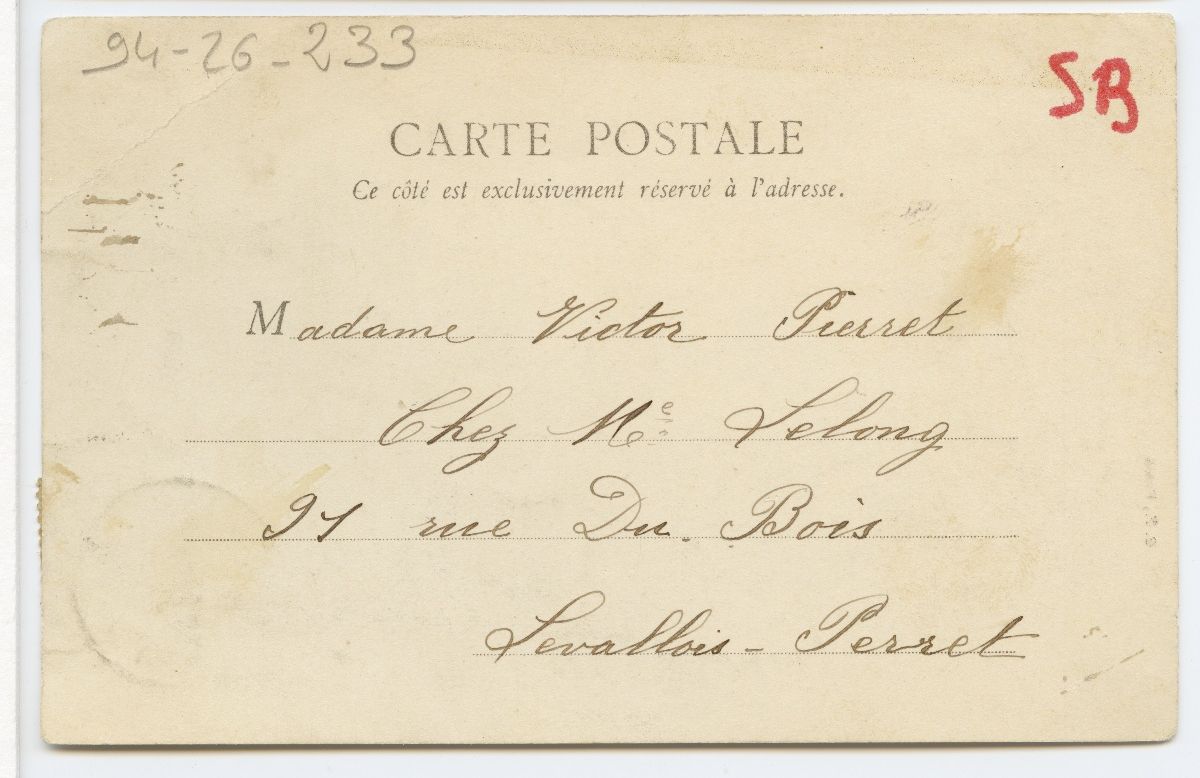 94-26-233
SB
CARTE POSTALE
Ce côté est exclusivement réservé à l'adresse.
Madame Victor Pierret
Chez Me Lelong
91 rue Du Bois
Levallois-Perret